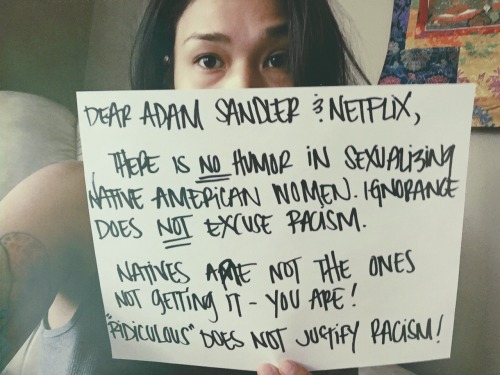 DEAR ADAM SANDLER & NETFLIX,
THERE IS NO HUMOR IN SEXUALIZING
NATIVE AMERICAN WOMEN. IGNORANCE
DOES NOT EXCUSE RACISM.
NATIVES ARE NOT THE ONES
NOT GETTING IT - YOU ARE!
"RIDICULOUS" DOES NOT JUSTIFY RACISM!